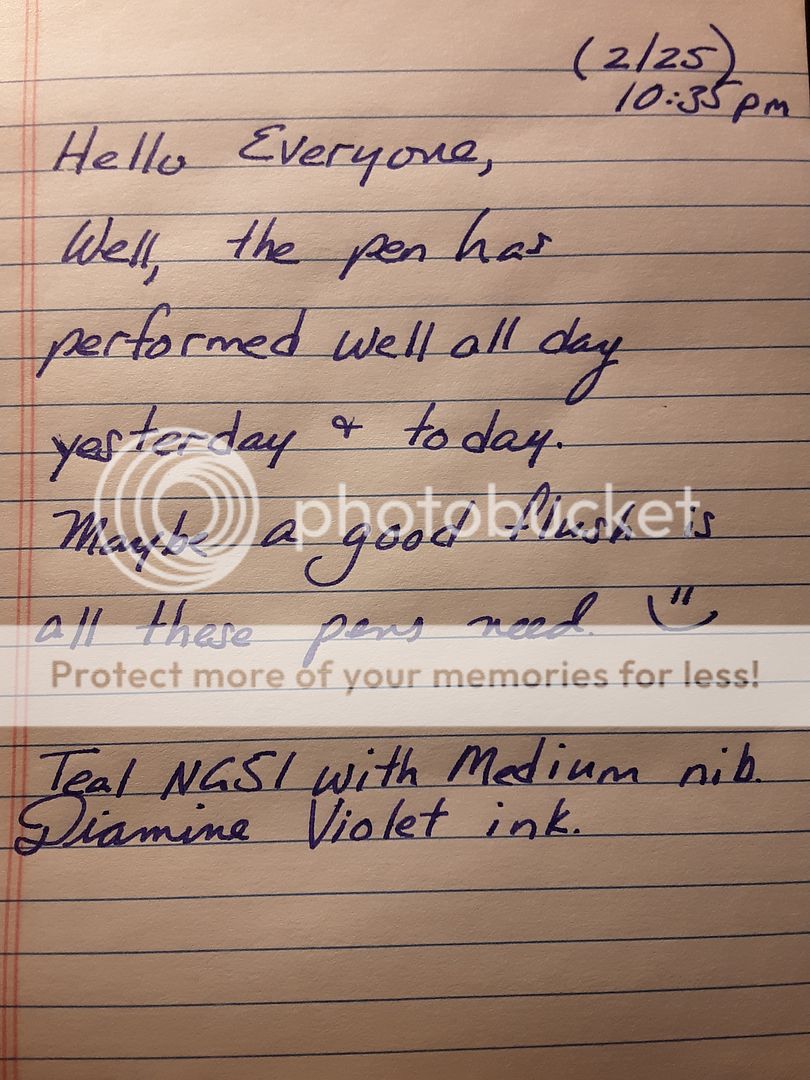 (2/25)
10:35 pm
Hello Everyone,
Well, the pen has
performed well all day
yesterday & today.
Maybe a good flush is
photobucket
all these pens need.
Protect more of your memories for less!
Teal NGS1 with Medium nib.
Diamine Violet ink.